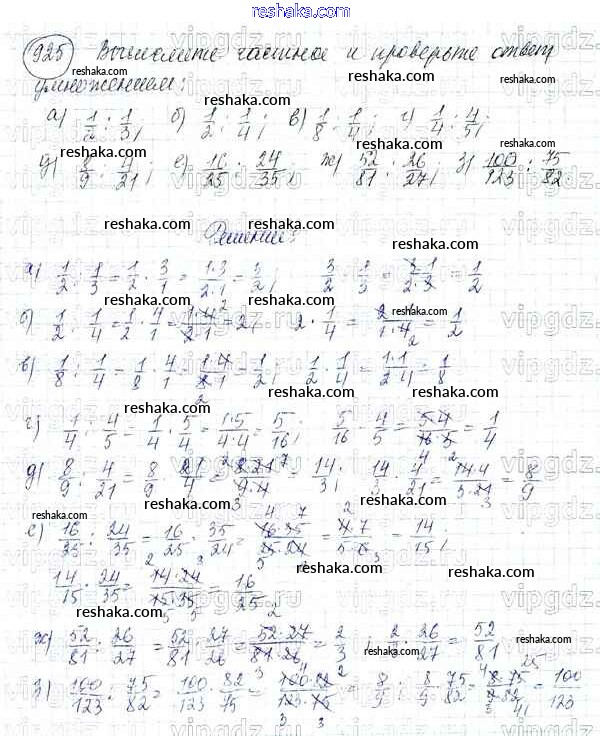 reshaka.com
925 Вычислите частное и проверьте ответ
reshaka.com
умножением:
а) 1/2 : 1/3; б) 1/2 : 1/4; в) 1/8 : 1/4; г) 1/4 : 4/5;
д) 8/9 : 4/21; е) 16/25 : 24/35; ж) 52/81 : 26/27; з) 100/123 : 75/82
reshaka.com
Решение:
а) 1/2 : 1/3 = 1/2 · 3/1 = 1·3/2·1 = 3/2; 3/2 · 1/3 = 3·1/2·3 = 1/2
б) 1/2 : 1/4 = 1/2 · 4/1 = 1·4/2·1 = 2; 2 · 1/4 = 2·1/1·4 = 1/2
в) 1/8 : 1/4 = 1/8 · 4/1 = 1·4/8·1 = 1/2; 1/2 · 1/4 = 1·1/2·4 = 1/8
reshaka.com
г) 1/4 : 4/5 = 1/4 · 5/4 = 1·5/4·4 = 5/16; 5/16 · 4/5 = 5·4/16·5 = 1/4
д) 8/9 : 4/21 = 8/9 · 21/4 = 8·21/9·4 = 14/3; 14/3 · 4/21 = 14·4/3·21 = 8/9
reshaka.com
е) 16/25 : 24/35 = 16/25 · 35/24 = 16·35/25·24 = 4·7/5·6 = 14/15;
14/15 · 24/35 = 14·24/15·35 = 16/25
reshaka.com
ж) 52/81 : 26/27 = 52/81 · 27/26 = 52·27/81·26 = 2/3; 2/3 · 26/27 = 52/81
з) 100/123 : 75/82 = 100/123 · 82/75 = 100·82/123·75 = 8/9; 8/9 · 75/82 = 8·75/9·82 = 100/123
reshaka.com